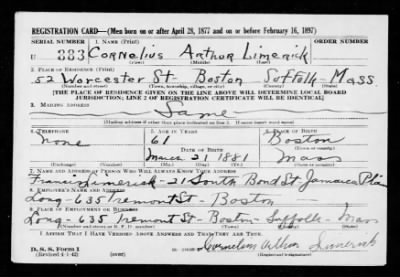 REGISTRATION CARD—(Men born on or after April 28, 1877 and on or before February 16, 1897)
SERIAL NUMBER 1. NAME (Print) ORDER NUMBER
U 883 Cornelius Arthur Limerick
(First) (Middle) (Last)
2. PLACE OF RESIDENCE (Print)
52 Worcester St- Boston Suffolk- Mass
(Number and street) (Town, township, village, or city) (County) (State)
[THE PLACE OF RESIDENCE GIVEN ON THE LINE ABOVE WILL DETERMINE LOCAL BOARD
JURISDICTION; LINE 2 OF REGISTRATION CERTIFICATE WILL BE IDENTICAL]
3. MAILING ADDRESS
Same
[Mailing address if other than place indicated on line 2. If same insert word same]
4. TELEPHONE 5. AGE IN YEARS 6. PLACE OF BIRTH
None 61 Boston
DATE OF BIRTH (Town or county)
March 21 1881 Mass
(Exchange) (Number) (Mo.) (Day) (Yr.) (State or country)
7. NAME AND ADDRESS OF PERSON WHO WILL ALWAYS KNOW YOUR ADDRESS
Francis Limerick- 21 South Bond St Jamaica Plain
8. EMPLOYER'S NAME AND ADDRESS
Long- 635 Tremont St- Boston
9. PLACE OF EMPLOYMENT OR BUSINESS
Long- 635 Tremont St- Boston- Suffolk- Mass
(Number and street or R. F. D. number) (Town) (County) (State)
I AFFIRM THAT I HAVE VERIFIED ABOVE ANSWERS AND THAT THEY ARE TRUE.
D. S. S. Form 1
(Revised 4-1-42) (over) Cornelius Arthur Limerick
(Registrant's signature)